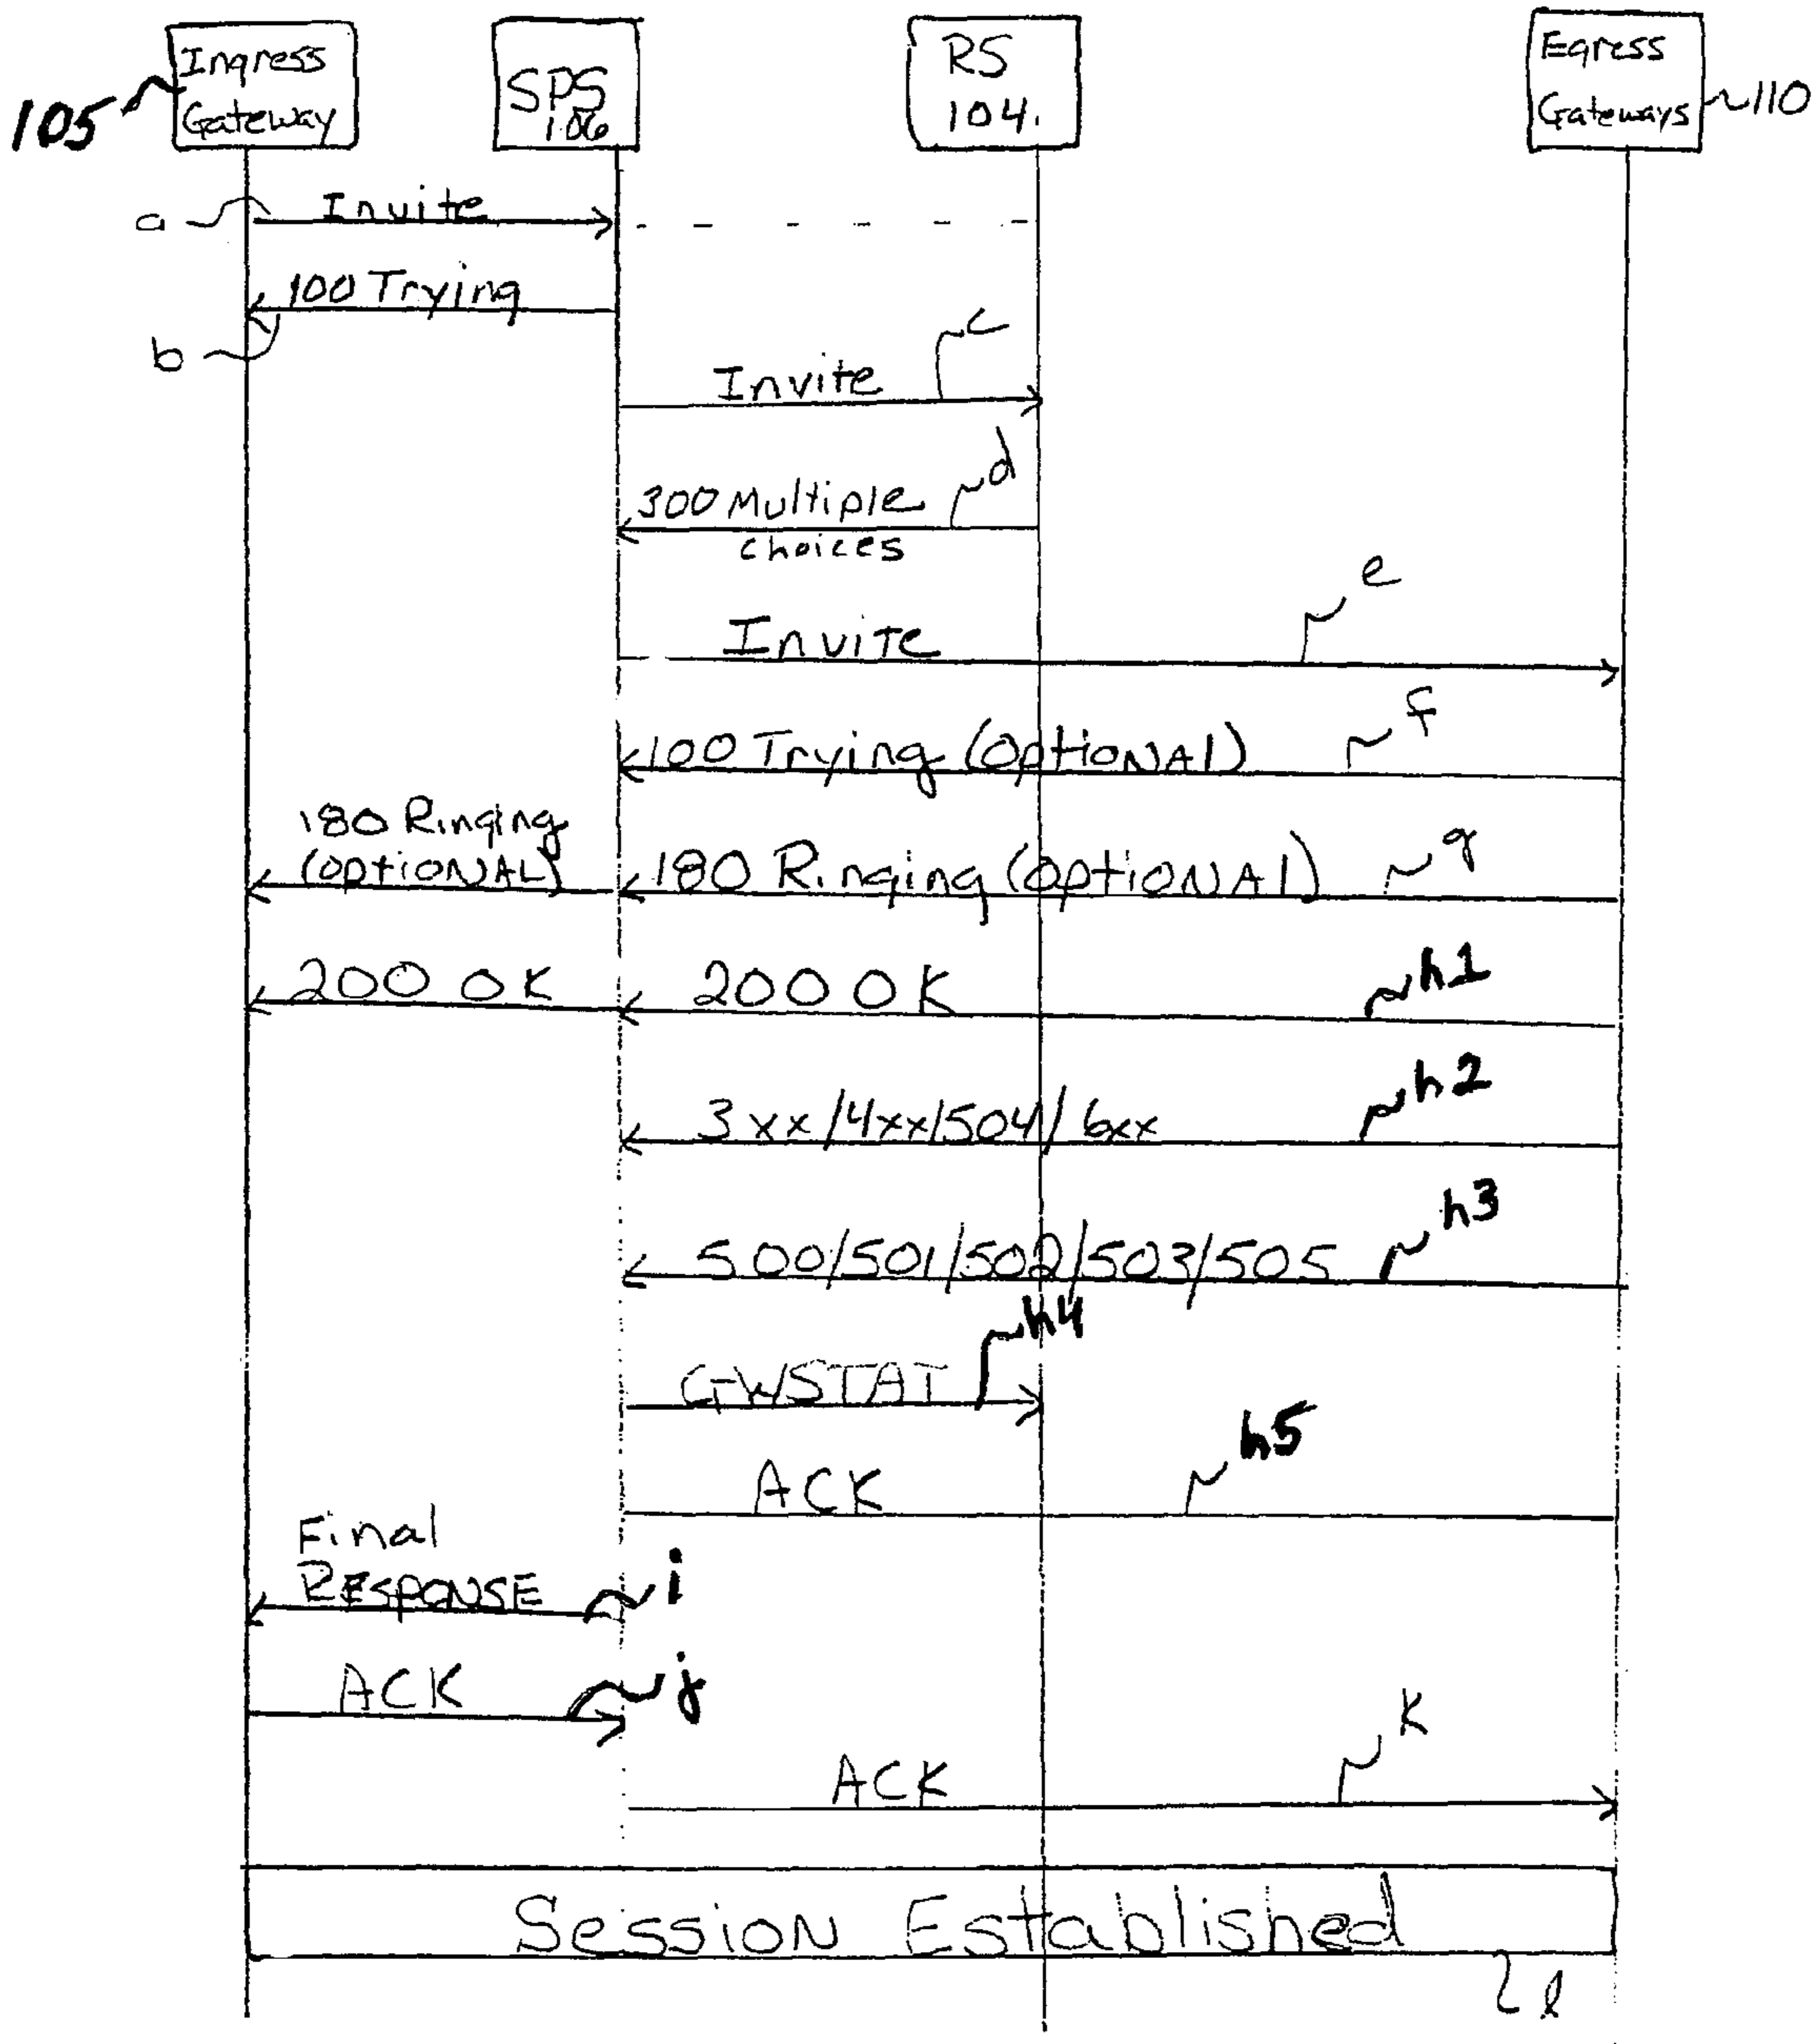 Ingress
Gateway
105
SPS
106
RS
104.
Egress
Gateways
110
a
Invite
100 Trying
b
c
Invite
d
300 Multiple
choices
e
Invite
f
100 Trying (OptiONAl)
180 Ringing
(OptiONAL)
180 Ringing (OptiONAl)
g
200 OK
200 OK
h1
h2
3xx/4xx/504/6xx
h3
500/501/502/503/505
h4
GWSTAT
h5
ACK
Final
RESPONSE
i
ACK
j
K
ACK
SessioN Established
l